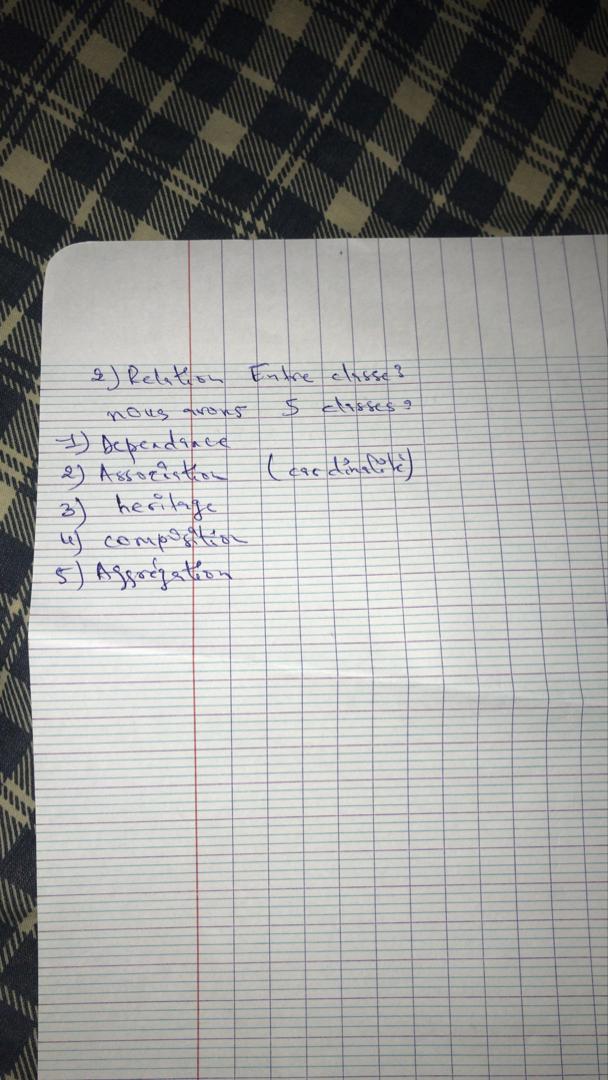 2) Relation Entre classe?
nous avons 5 classes?
1) Dependance
2) Association (cardinalité)
3) heritage
4) composition
5) Aggrégation